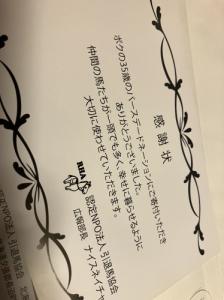 感謝状
ボクの35歳のバースデードネーションにご寄付いただき
ありがとうございました。
仲間の馬たちが一頭でも多く、幸せに暮らせるように
大切に使わせていただきます。
RHA
認定NPO法人 引退馬協会
広報部長 ナイスネイチャ
認定NPO法人 引退馬協会